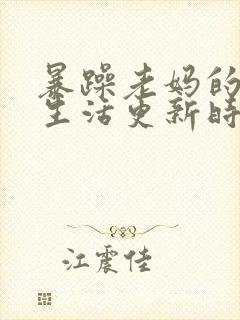 暴躁老妈的
生活更新时
江震佳